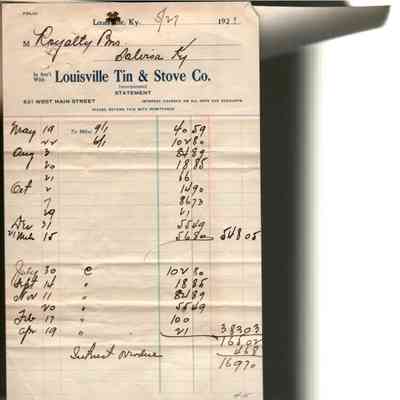 FOLIO
Louisville, Ky. 5/27 192
M Royalty Bros
Salvisa Ky
In Acc't With Louisville Tin & Stove Co.
Incorporated
STATEMENT
631 WEST MAIN STREET INTEREST CHARGED ON ALL PAST DUE ACCOUNTS
PLEASE RETURN THIS WITH REMITTANCE
May 19 To Mdse 9/1 40 59
22 6/1 102 80
Aug 3 84 89
20 18 85
21 66
Oct 2 14 90
7 86 73
29 21
Dec 31 55 49
21 Mch 15 56 80 548 05
July 30 C 102 80
Sept 14 " 18 85
Nov 11 " 84 89
20 "
Feb 17 " 100
Apr 19 " 21 383 03
165 02
4 68
169 70
Interest overdue